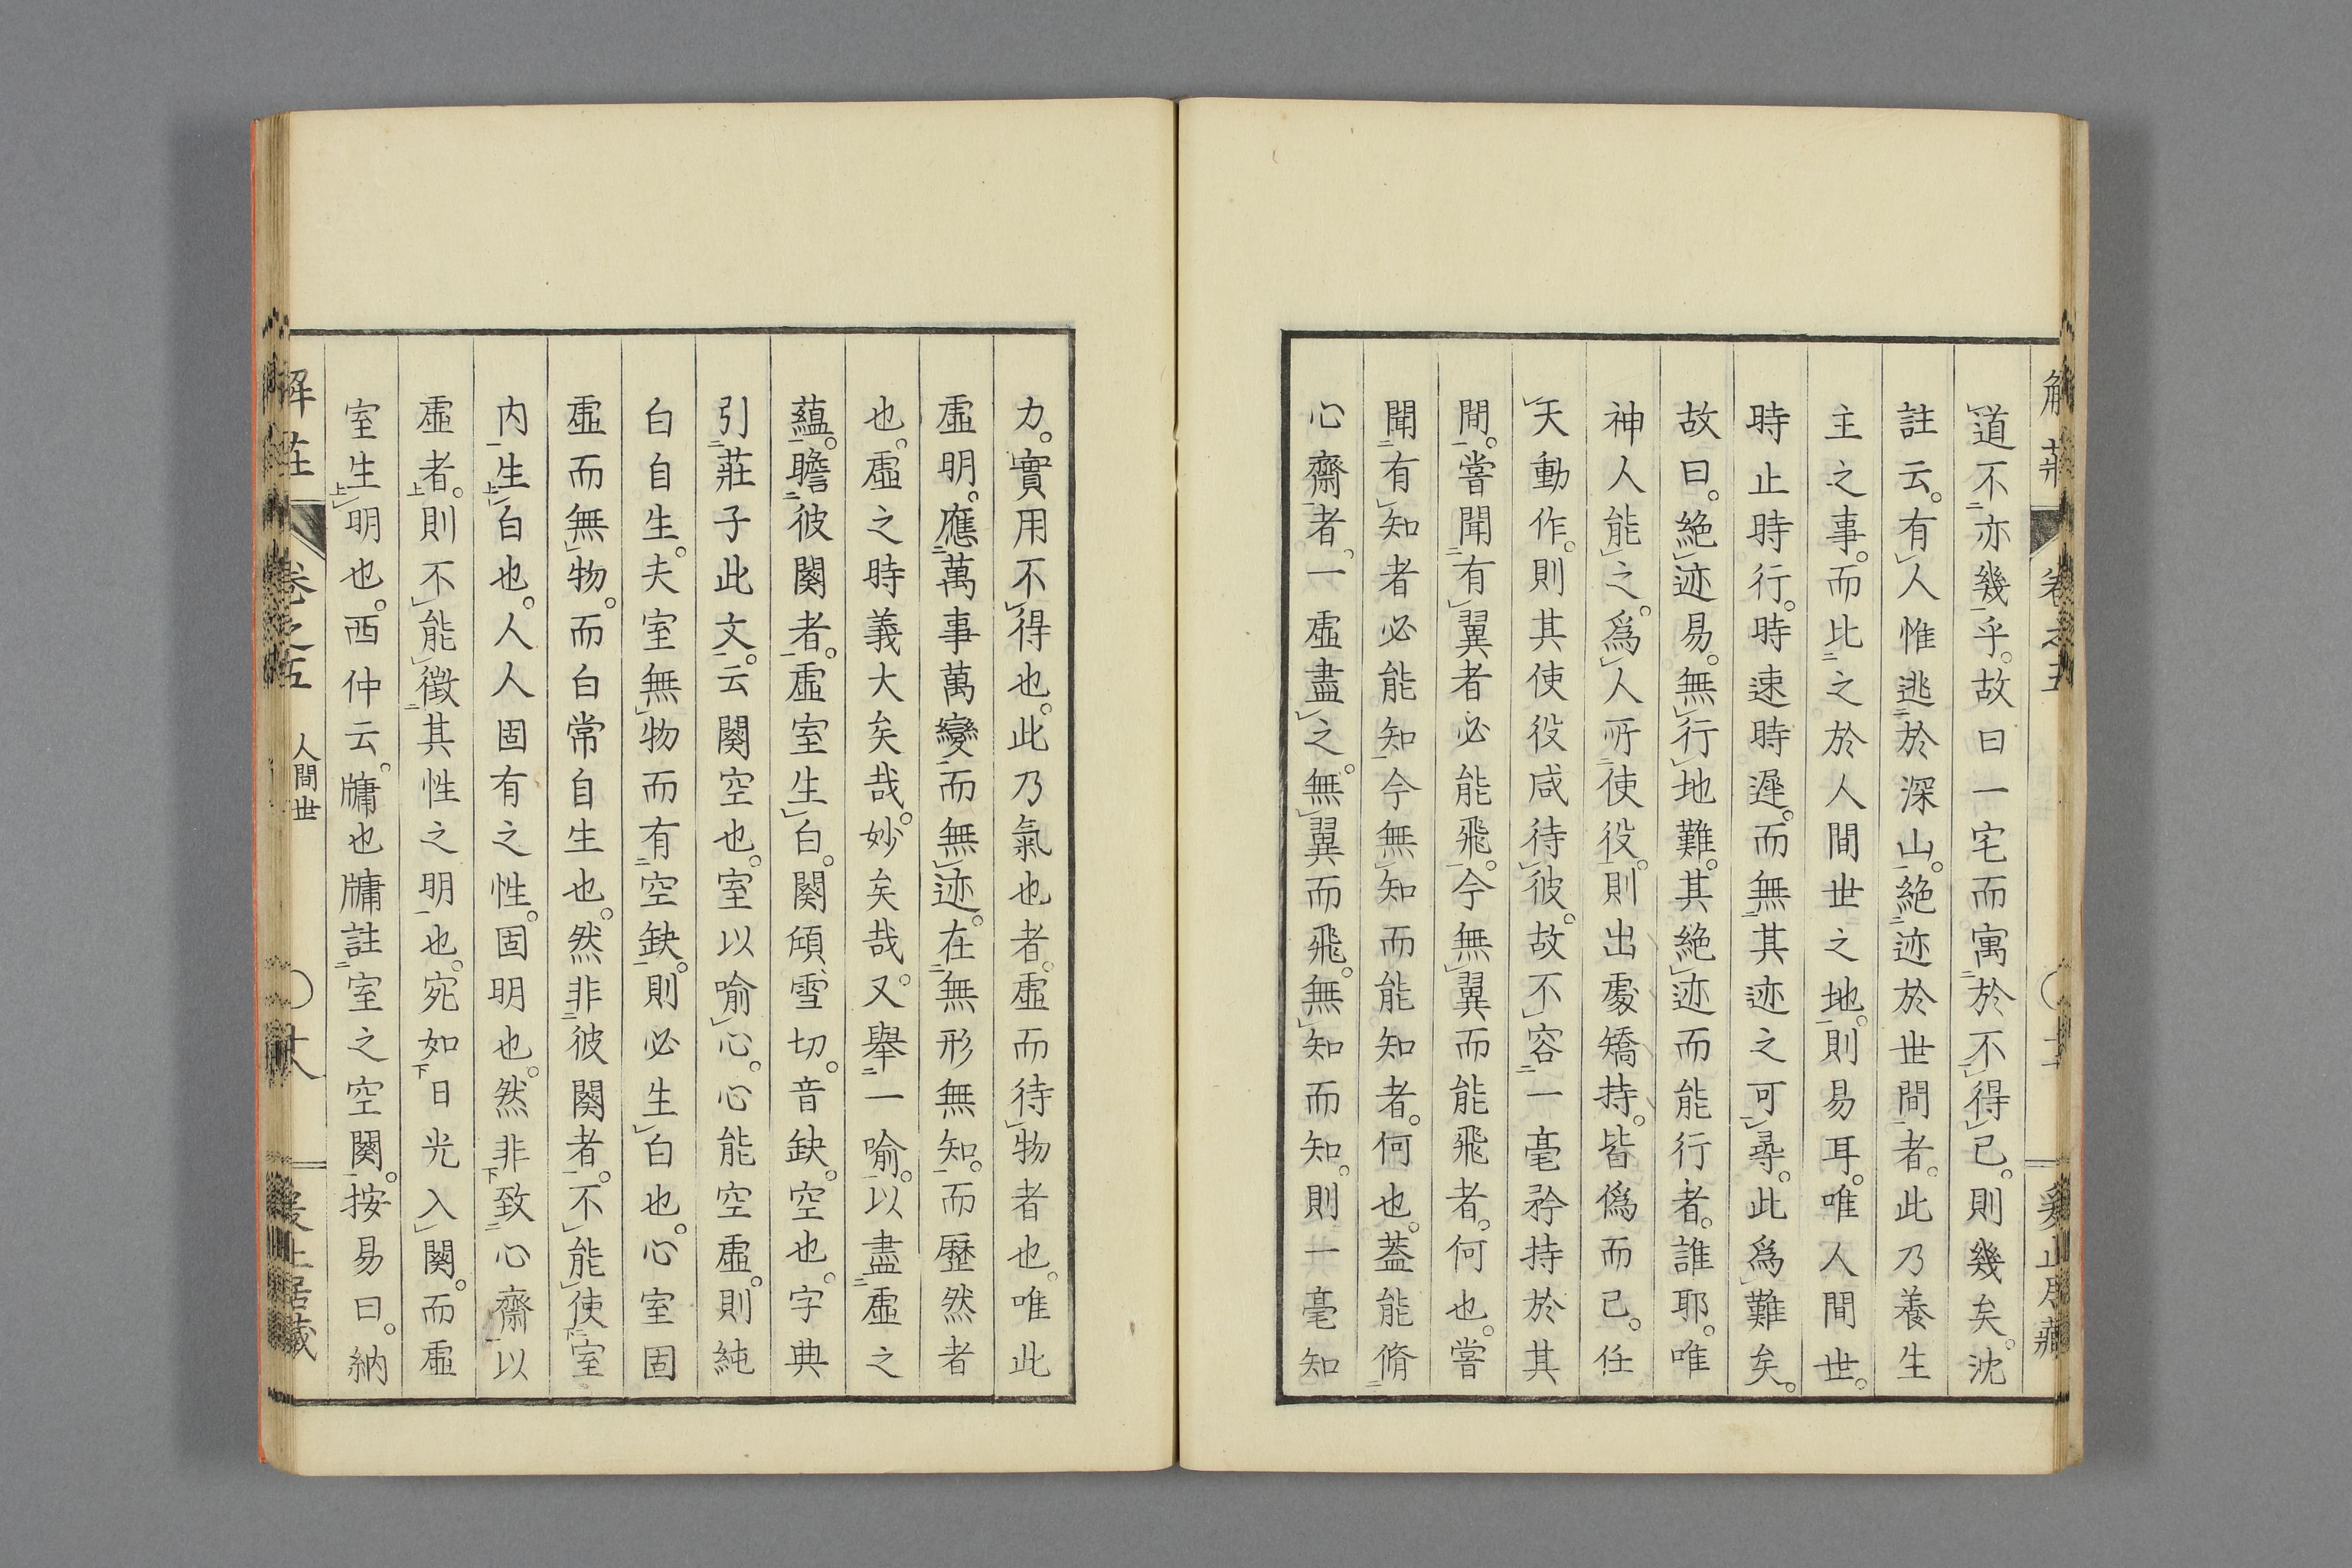 道不亦幾乎。故曰一宅而寓於不得已。則幾矣。沈
註云。有人惟逃於深山。絕迹於世間者。此乃養生
主之事。而比之於人間世之地。則易耳。唯人間世。
時止時行。時速時遲。而無其迹之可尋。此爲難矣。
故曰。絕迹易。無行地難。其絕迹而能行者。誰耶。唯
神人能之。爲人所使役。則出處矯持。皆僞而已。任
天動作。則其使役咸待彼。故不容一毫矜持於其
間。嘗聞有翼者必能飛。今無翼而能飛者。何也。嘗
聞有知者必能知今無知而能知者。何也。蓋能脩
心齋者。一虛盡之。無翼而飛。無知而知。則一毫知
力。實用不得也。此乃氣也者。虛而待物者也。唯此
虛明。應萬事萬變而無迹。在無形無知。而歷然者
也。虛之時義大矣哉。妙矣哉。又舉一喻。以盡虛之
蘊。瞻彼闋者。虛室生白。闋傾雪切。音缺。空也。字典
引莊子此文。云闋空也。室以喻心。心能空虛。則純
白自生。夫室無物而有空缺。則必生白也。心室固
虛而無物。而白常自生也。然非彼闋者。不能使室
内生白也。人人固有之性。固明也。然非致心齋以
虛者。則不能徵其性之明也。宛如日光入闋。而虛
室生明也。西仲云。牗也牗註室之空闋。按易曰。納
解莊 卷之五 人間世